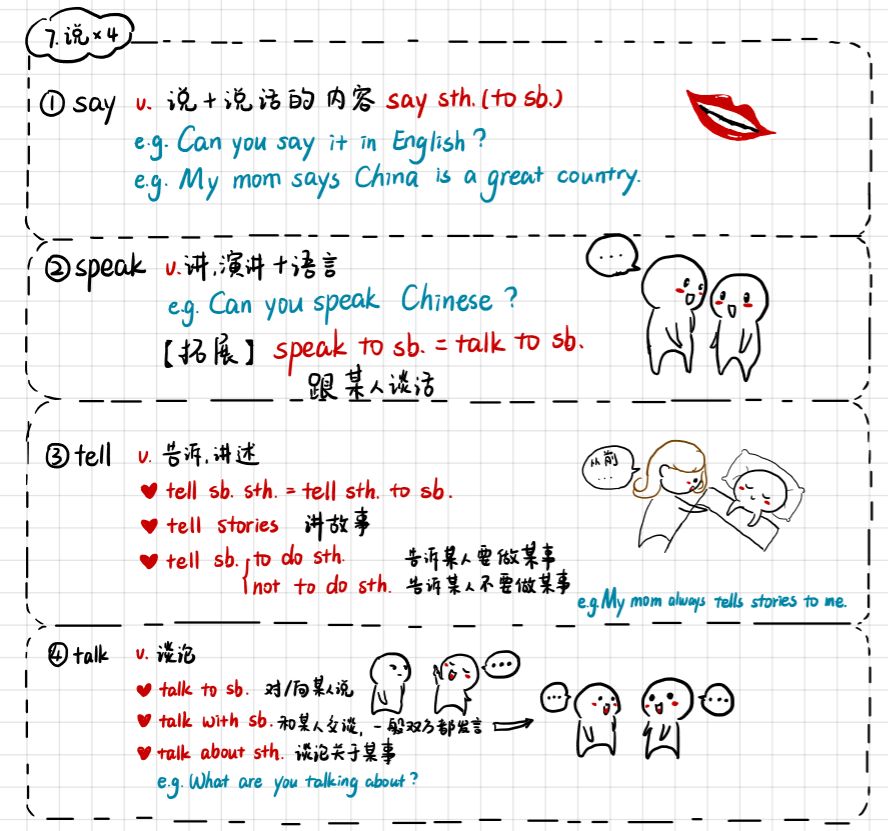 7.说×4
① say v. 说+说话的内容 say sth.(to sb.)
e.g. Can you say it in English?
e.g. My mom says China is a great country.
② speak v.讲,演讲+语言
e.g. Can you speak Chinese?
【拓展】 speak to sb. = talk to sb.
跟某人谈话
...
③ tell v. 告诉,讲述
♥ tell sb. sth. = tell sth. to sb.
♥ tell stories 讲故事
♥ tell sb. to do sth. 告诉某人要做某事
not to do sth. 告诉某人不要做某事
从前
...
e.g.My mom always tells stories to me.
④ talk v. 谈论
♥ talk to sb. 对/向某人说
♥ talk with sb. 和某人交谈,一般双方都发言
♥ talk about sth. 谈论关于某事
e.g. What are you talking about?
...
...
...